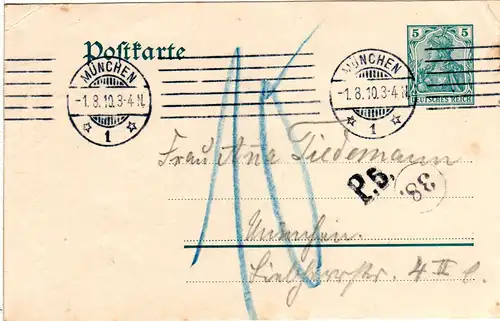 Postkarte
5 5
DEUTSCHES REICH
MÜNCHEN
-1.8.10.3-4 N.
1
MÜNCHEN
-1.8.10.3-4 N.
1
10
Frau Anna Tiedemann
P.5,
38.
München.
4 III